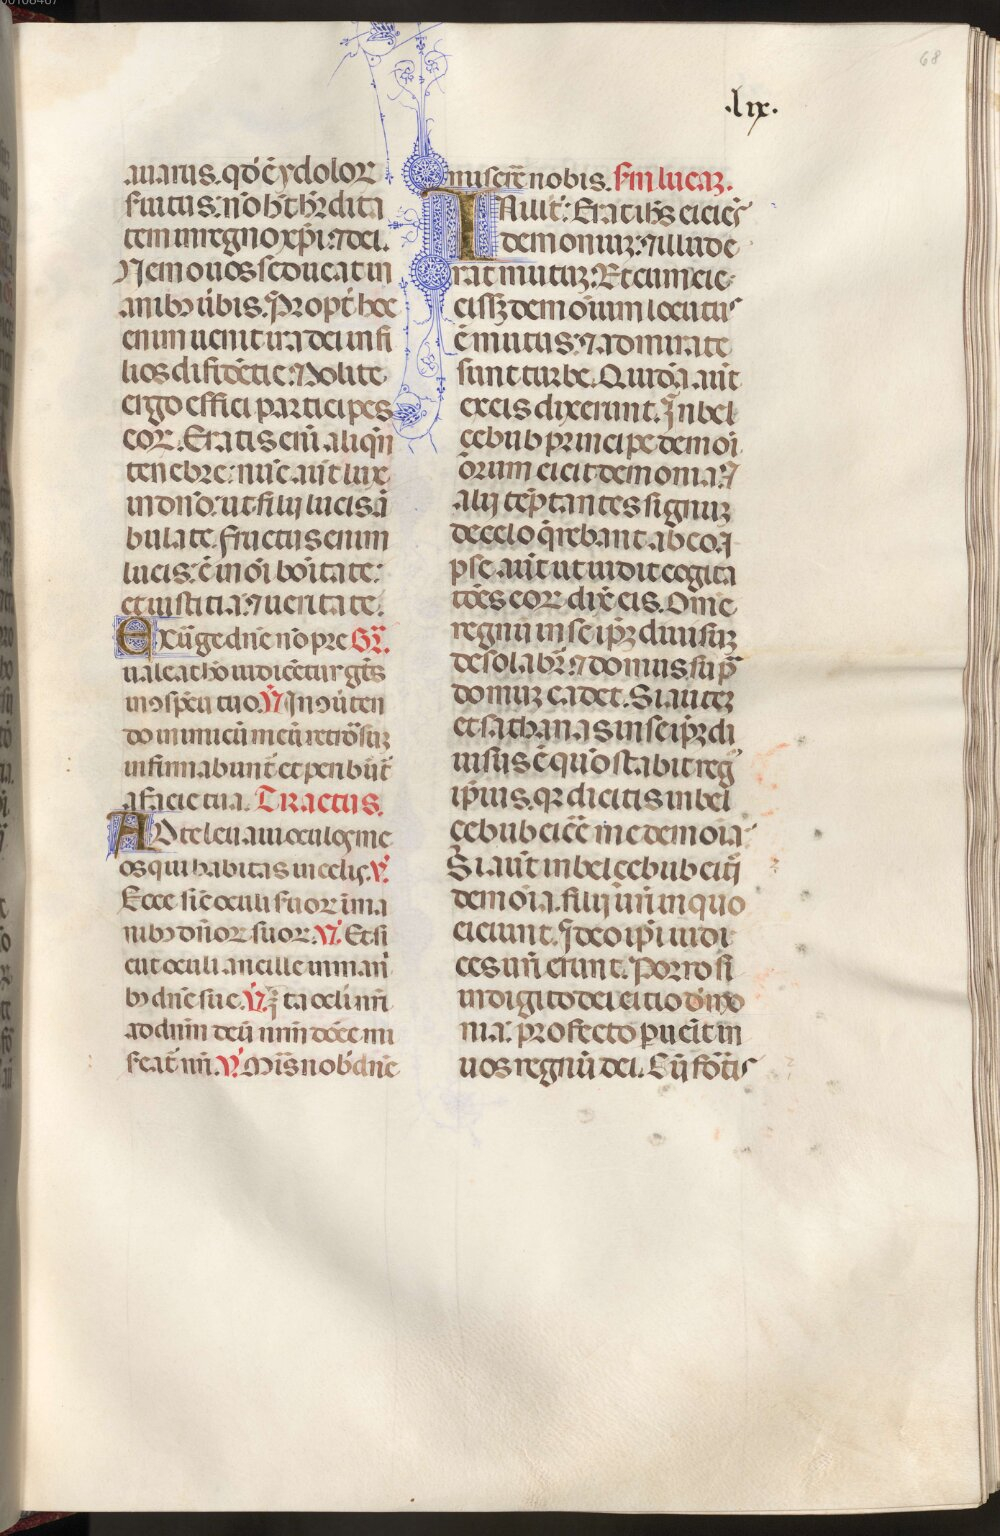 68
.lix.
auarus. qd' ē ydolor
seruitus: nō h̄t h̄edita
tem in regno xp̄i: ⁊ dei.
Nemo uos seducat in
anibꝫ ūbis. Propt̄ hoc
enim uenit ira dei in fi
lios difidētie. Nolite
ergo effici participes
eoꝝ. Eratis eni aliqn̄
tenebre: nūc aūt lux
in dn̄o. ut filij lucis ā
bulate. fructus enim
lucis: ē in om̄i boītate:
et iustitia: ⁊ ueritate.
Exūge dn̄e nō pre Gr̄.
ualeat hō iudicētur gēs
in ꝯspectu tuo. V̄ In ꝯuten
do inimicū meū retrosuꝫ
infirmabunt̄ et peribūt
a facie tua. Tractus.
AD te leuaui oculos me
os qui habitas in celis. V̄.
Ecce sic oculi seruoꝝ ī ma
nibꝫ dn̄oꝝ suoꝝ. V̄. Et si
cut oculi ancille in man̄
bꝫ dn̄e sue. V̄. Ita ocli nr̄i
ad dn̄m deū nr̄m donec mi
seat̄ nr̄i. V̄. Mis̄ nob̄ dn̄e
miserēre nobis. Sm lucaꝫ.
IN illo t̄. Erat ih̄s eiciēs
demoniuꝫ: ⁊ illud e
rat mutuꝫ. Et cum eie
cissꝫ demonium locutus
ē mutus: ⁊ admirate
sunt turbe. Quidā aūt
ex eis dixerunt. In bel
cebub principe demoi
orum eicit demonia: ⁊
alij tēptantes signuꝫ
de celo q̄rebant ab eo. I
pse aūt ut uidit cogita
tōes eoꝝ dix̄ eis. Omē
regnū in se ip̄ꝫ diuisuꝫ
desolabr̄: ⁊ domus sup̄
domuꝫ cadet. Si auteꝫ
et sathanas in se ip̄ꝫ di
uisus ē quō stabit reg̅
ip̄ius. qꝛ dicitis in bel
cebub eicē me demoīa.
Si aūt in belcebub eitī
demoīa. filij ur̄i in quo
eiciunt. Ideo ip̄i iudi
ces ur̄i erunt. Porro si
in digito dei eitio demo
nia: profecto puēit in
uos regnū dei. Cū fortis